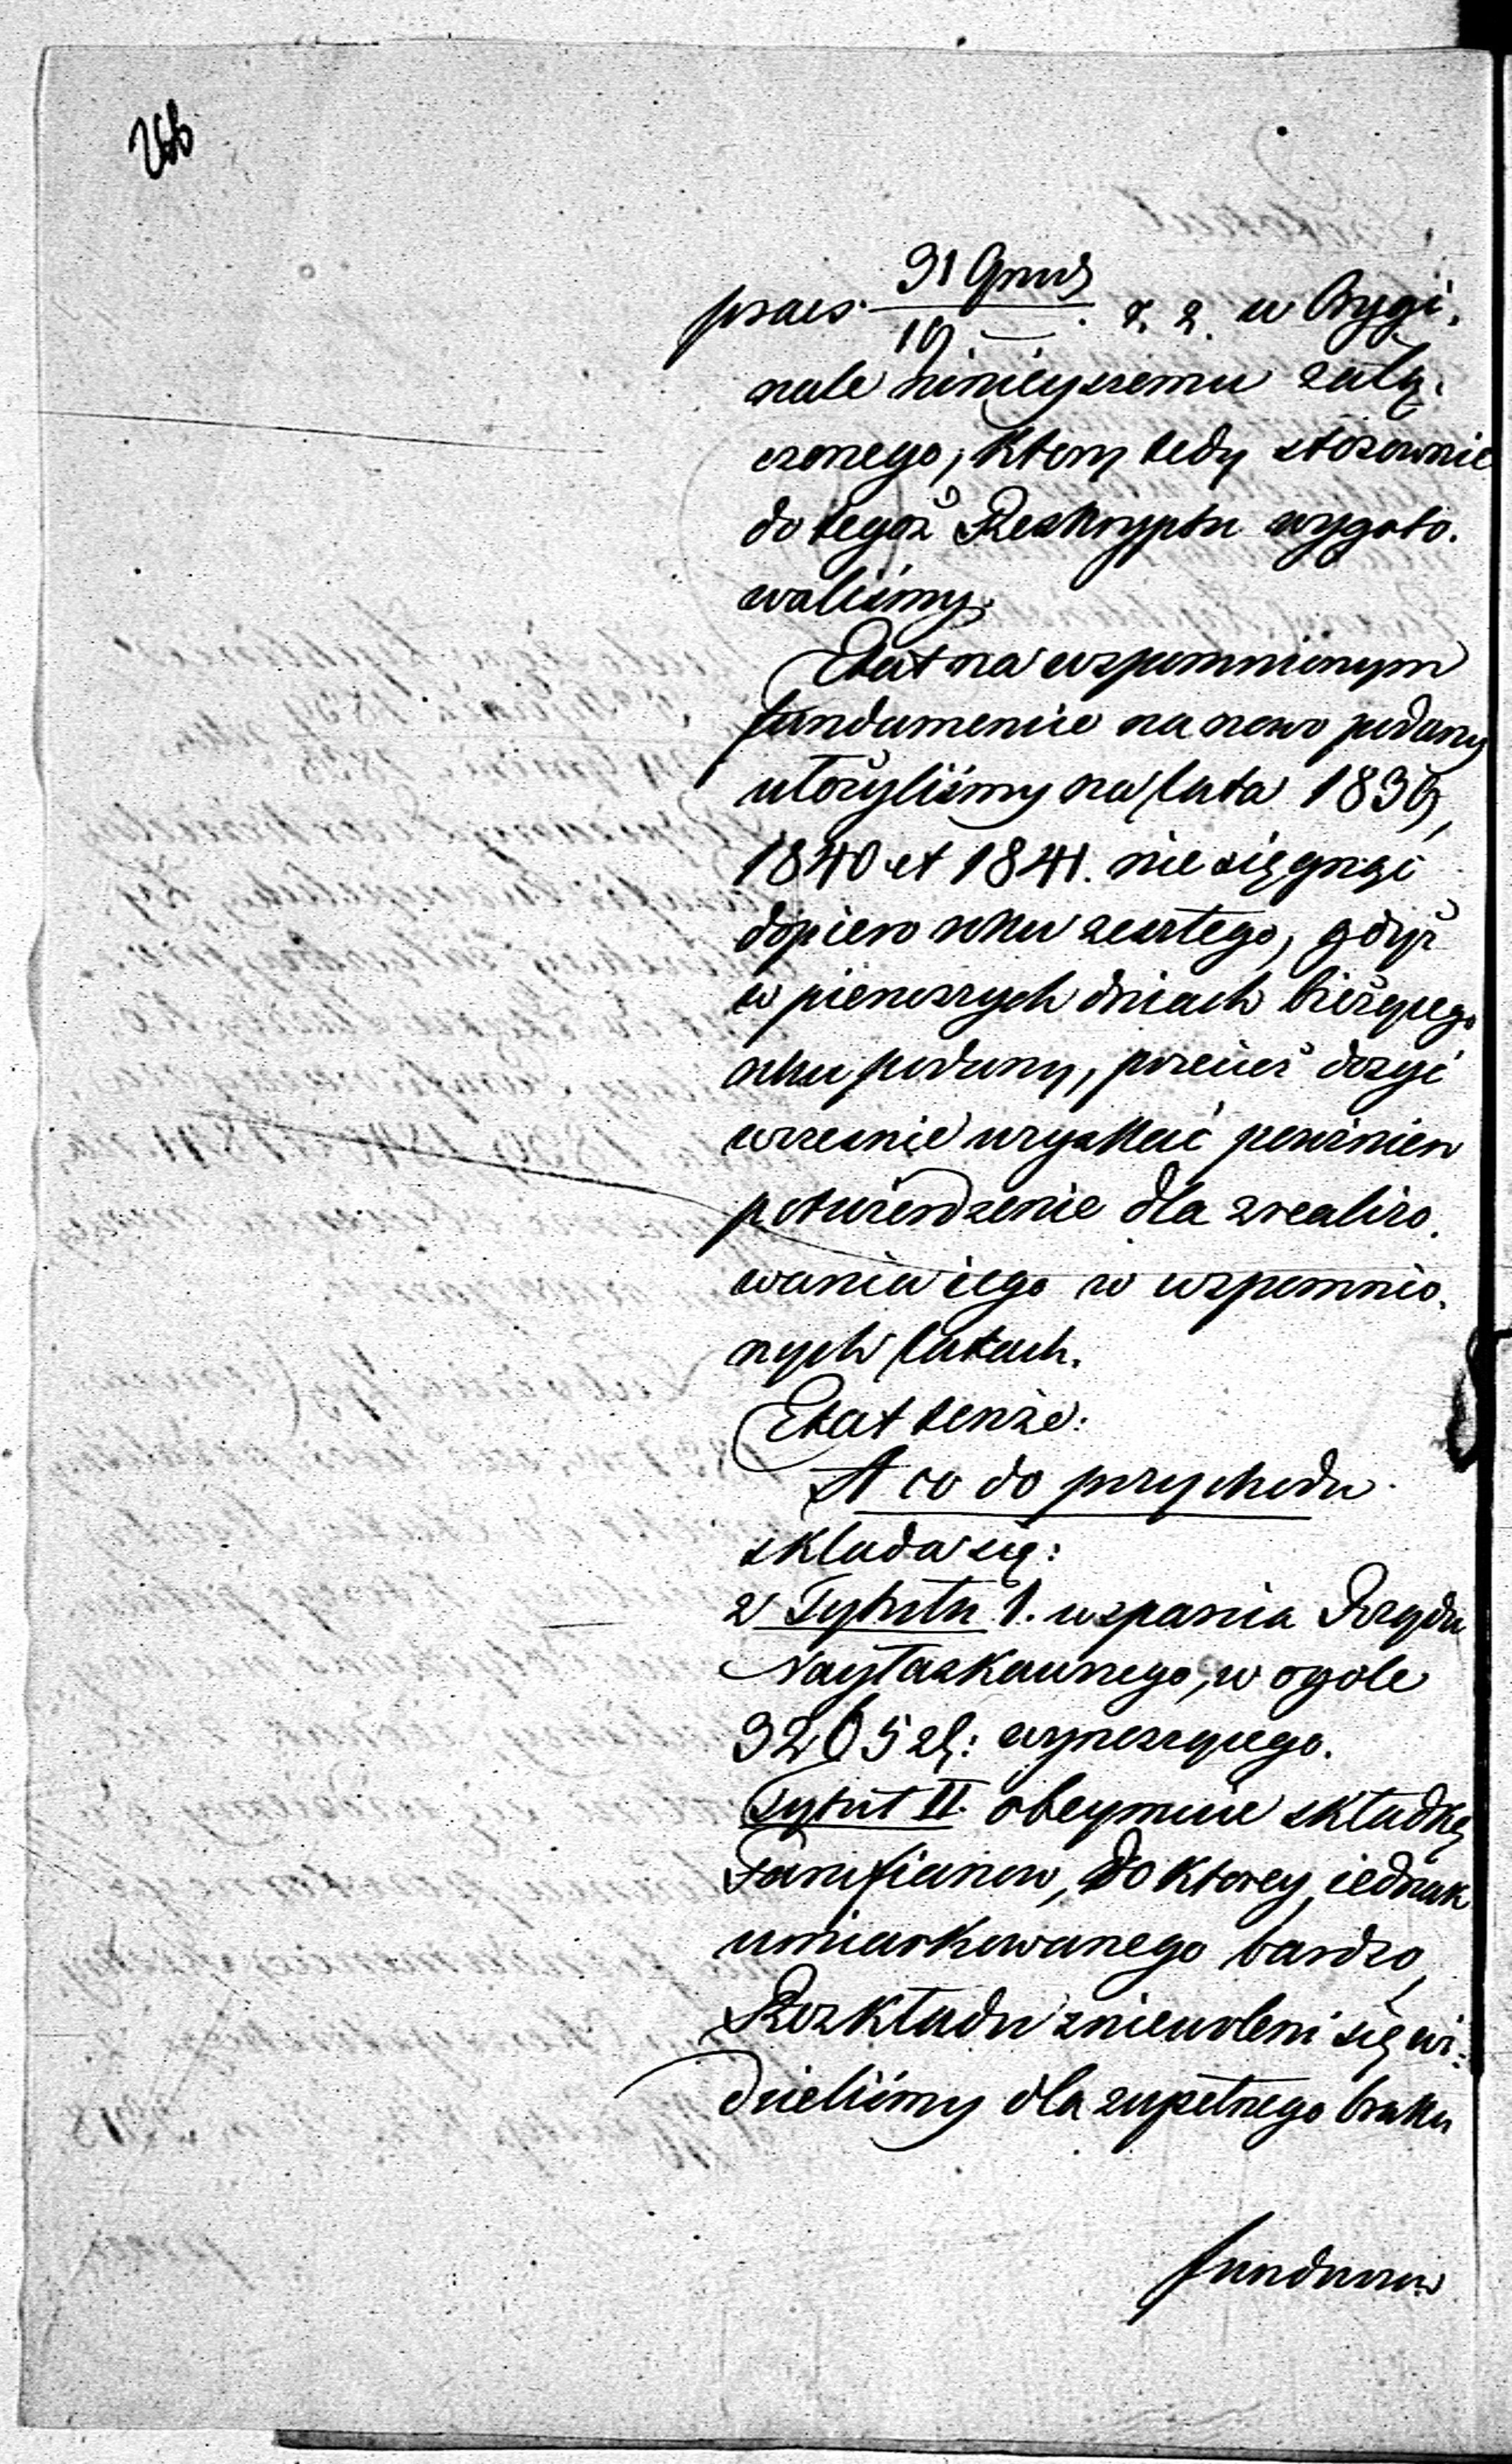 266
praes. 31 Grud / 19 — . r. z. w Orygi.
nale ninieyszemu załą.
czonego, ktory tedy stosownie
do tegoż Reskryptu wygoto.
waliśmy.
Etat na wspomnionym
fundamencie na nowo podany
ułożyliśmy na lata 1839,
1840 et 1841. nie sięgaiąc
dopiero roku zeszłego, gdyż
w pierwszych dniach bieżącego
roku podany, przeciesz dosyć
wcześnie uzyskać powinien
potwierdzenie dla zrealizo.
wania iego w wspomnio.
nych latach.
Etat tenże:
A co do przychodu
składa się:
z Tytułu I. wsparcia Rządu
Nayłaskawszego, w ogole
3265 zł: wynoszącego.
Tytuł II. obeymuie składkę
Parafianow, do ktorey iednak
umiarkowanego bardzo,
Rozkładu zniewoleni się wi.
dzieliśmy dla zupełnego braku
funduszu